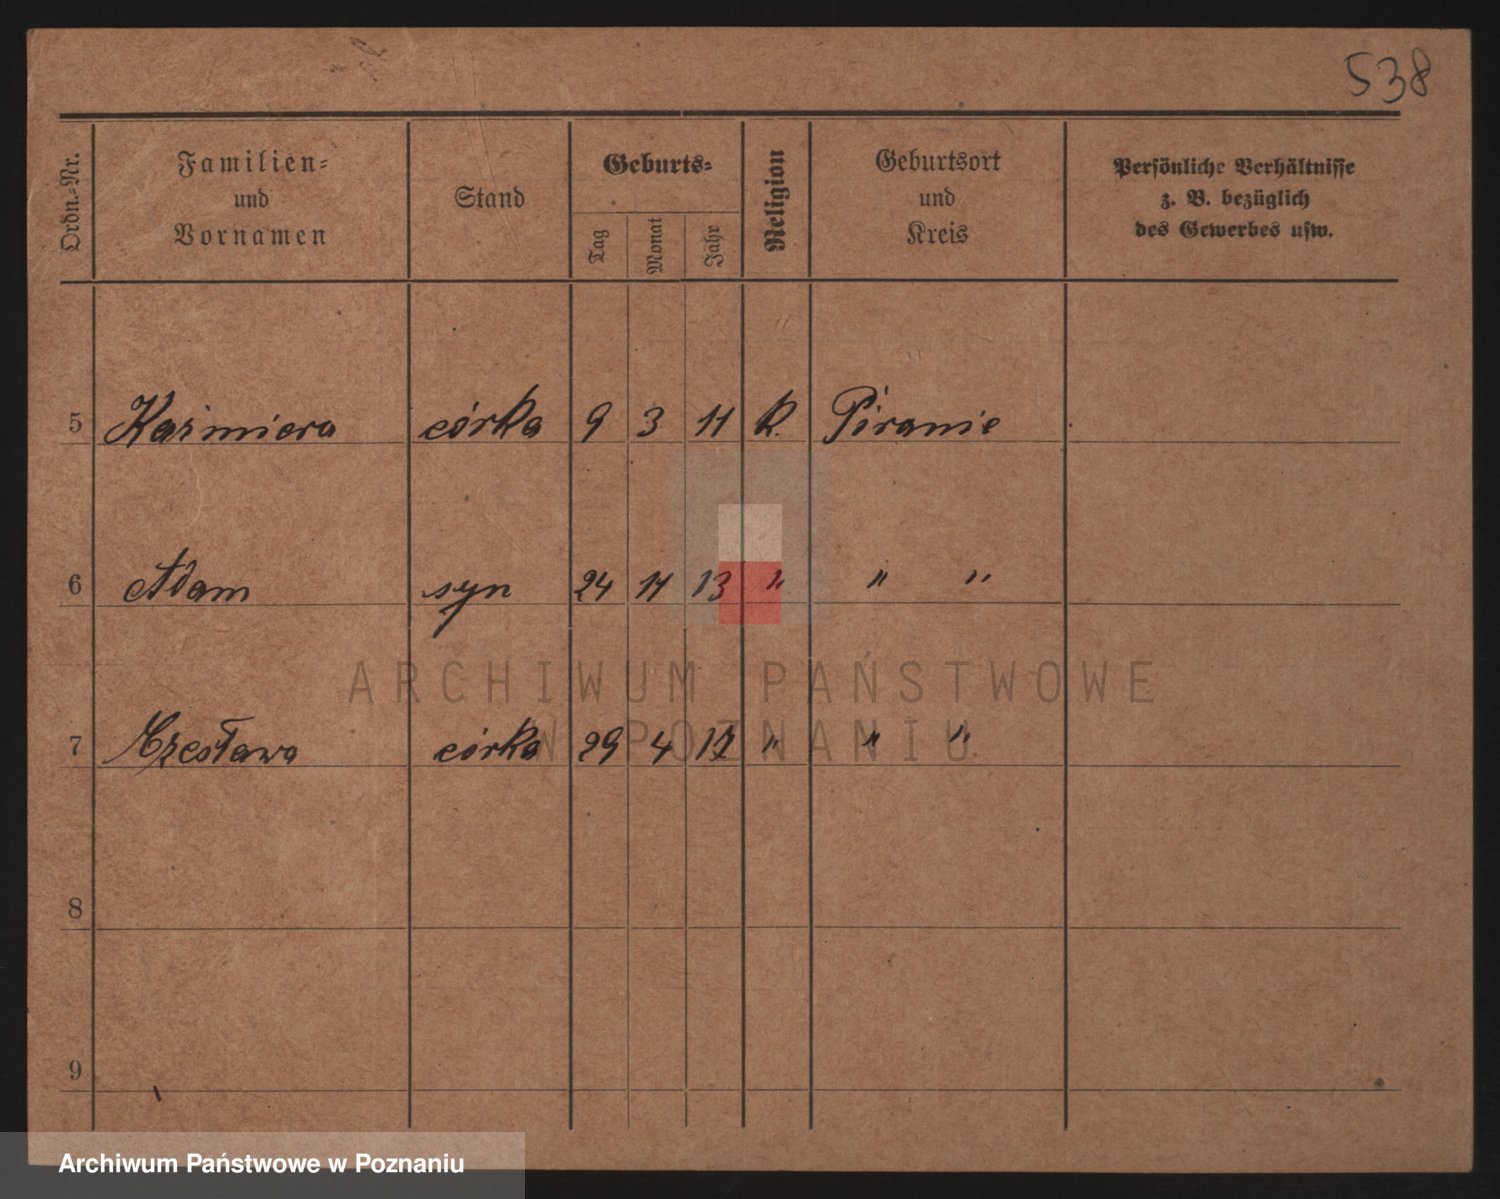 538
Ordn.-Nr.
Familien-
und
Vornamen
Stand
Geburts-
Tag
Monat
Jahr
Religion
Geburtsort
und
Kreis
Persönliche Verhältnisse
z. B. bezüglich
des Gewerbes usw.
5 Kaźmiera córka 9 3 11 k. Piranie
6 Adam syn 24 11 13 " " "
7 Czesława córka 29 4 17 " " "
8
9
ARCHIWUM PAŃSTWOWE
W POZNANIU
Archiwum Państwowe w Poznaniu